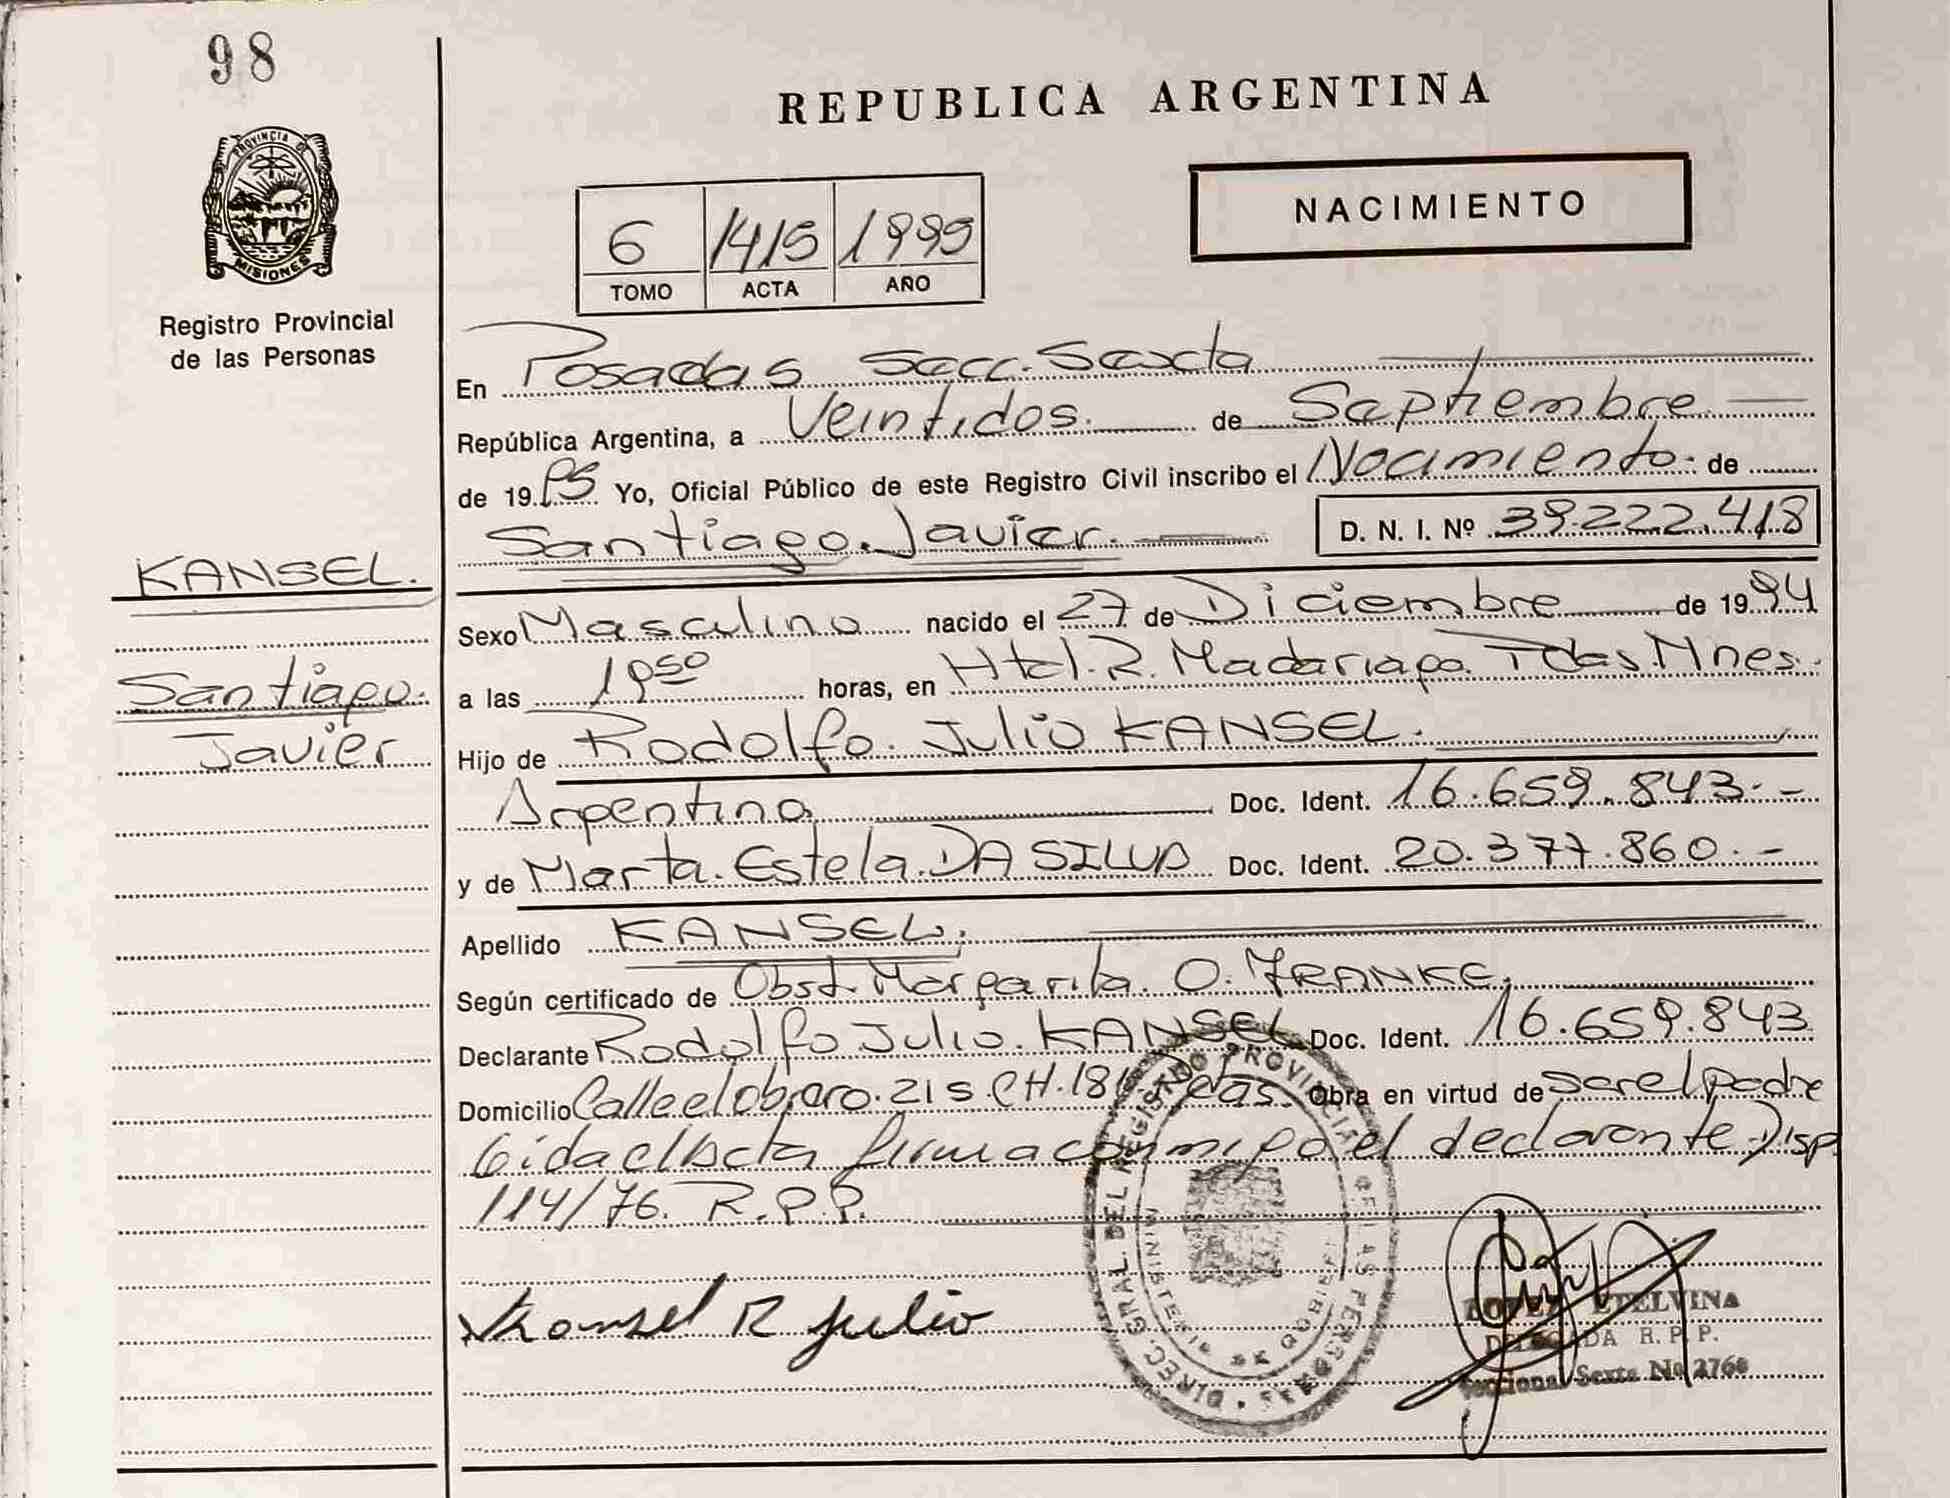 98
PROVINCIA DE
MISIONES
Registro Provincial
de las Personas
KANSEL.
Santiago.
Javier
REPUBLICA ARGENTINA
NACIMIENTO
6 1415 1995
TOMO ACTA AÑO
En Posadas Secc. Sexta
República Argentina, a Veintidos. de Septiembre
de 1995 Yo, Oficial Público de este Registro Civil inscribo el Nacimiento. de
Santiago. Javier. D. N. I. Nº 39.222.418
Sexo Masculino nacido el 27 de Diciembre de 1994
a las horas, en Htal. R. Madariaga. Pdas. Mnes.
Hijo de Rodolfo. Julio KANSEL.
Argentino Doc. Ident. 16.659.843.-
y de Marta. Estela. DA SILVA Doc. Ident. 20.377.860.-
Apellido KANSEL.
Según certificado de Obst. Margarita. O. FRANKE.
Declarante Rodolfo Julio. KANSEL Doc. Ident. 16.659.843
Domicilio Calle el obrero. 215. CH. 181. Pdas. Obra en virtud de ser el padre
Leida el Acta firma conmigo el declarante. Disp
114/76. R.P.P.
Kansel R Julio
DIREC. GRAL. DEL REGISTRO PROVINCIAL DE LAS PERSONAS
MINISTERIO DE GOBIERNO
LOPEZ ETELVINA
DELEGADA R. P. P.
Seccional Sexta No 2760